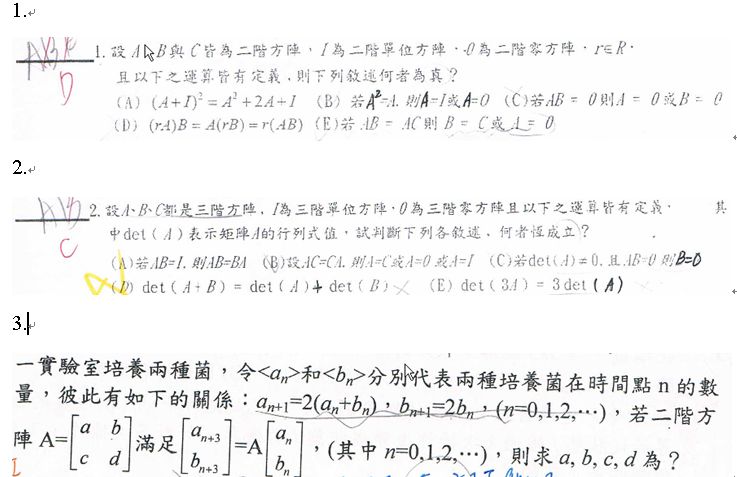 1.
AB
D
1. 設A、B與C皆為二階方陣，I為二階單位方陣，O為二階零方陣，r∈R，
且以下之運算皆有定義，則下列敘述何者為真？
(A) (A+I)²=A²+2A+I (B) 若A²=A，則A=I或A=O (C)若AB = 0則A = 0或B = 0
(D) (rA)B = A(rB) = r(AB) (E)若 AB = AC則 B = C或 A = 0
2.
C
2. 設A、B、C都是三階方陣，I為三階單位方陣，0為三階零方陣且以下之運算皆有定義， 其
中det ( A ) 表示矩陣A的行列式值，試判斷下列各敘述，何者恆成立？
(A)若AB=I，則AB=BA (B)設AC=CA，則A=C或A=0或A=I (C)若det(A)≠0，且AB=0則B=0
(D) det ( A + B ) = det ( A ) + det ( B ) (E) det ( 3A ) = 3 det ( A )
3.
一實驗室培養兩種菌，令<aₙ>和<bₙ>分別代表兩種培養菌在時間點 n 的數
量，彼此有如下的關係：aₙ₊₁=2(aₙ+bₙ)，bₙ₊₁=2bₙ，(n=0,1,2,⋯)，若二階方
陣 A=[a b; c d]滿足[aₙ₊₃; bₙ₊₃]=A[aₙ; bₙ]，(其中 n=0,1,2,⋯)，則求 a, b, c, d 為？